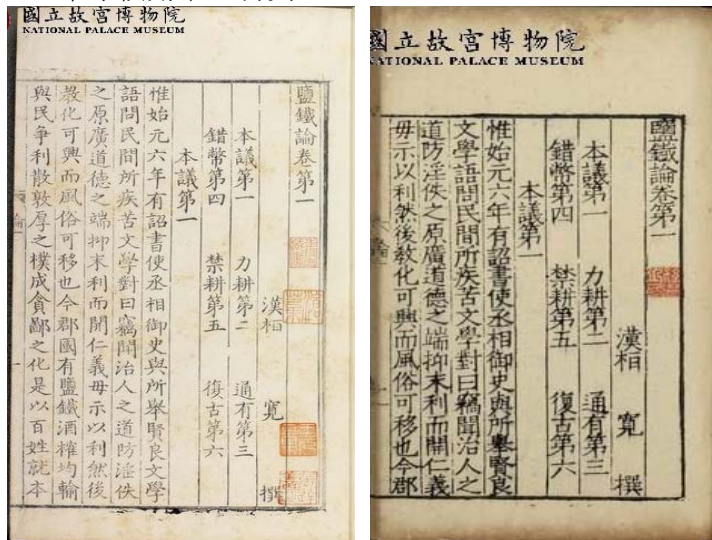 國立故宮博物院
NATIONAL PALACE MUSEUM
鹽鐵論卷第一
漢桓寬撰
本議第一 力耕第二 通有第三
錯幣第四 禁耕第五 復古第六
本議第一
惟始元六年有詔書使丞相御史與所舉賢良文學
語問民間所疾苦文學對曰竊聞治人之道防淫佚
之原廣道德之端抑末利而開仁義毋示以利然後
教化可興而風俗可移也今郡國有鹽鐵酒榷均輸
與民爭利散敦厚之樸成貪鄙之化是以百姓就本
國立故宮博物院
NATIONAL PALACE MUSEUM
鹽鐵論卷第一
漢桓寬撰
本議第一 力耕第二 通有第三
錯幣第四 禁耕第五 復古第六
本議第一
惟始元六年有詔書使丞相御史與所舉賢良
文學語問民間所疾苦文學對曰竊聞治人之
道防淫佚之原廣道德之端抑末利而開仁義
毋示以利然後教化可興而風俗可移也今郡